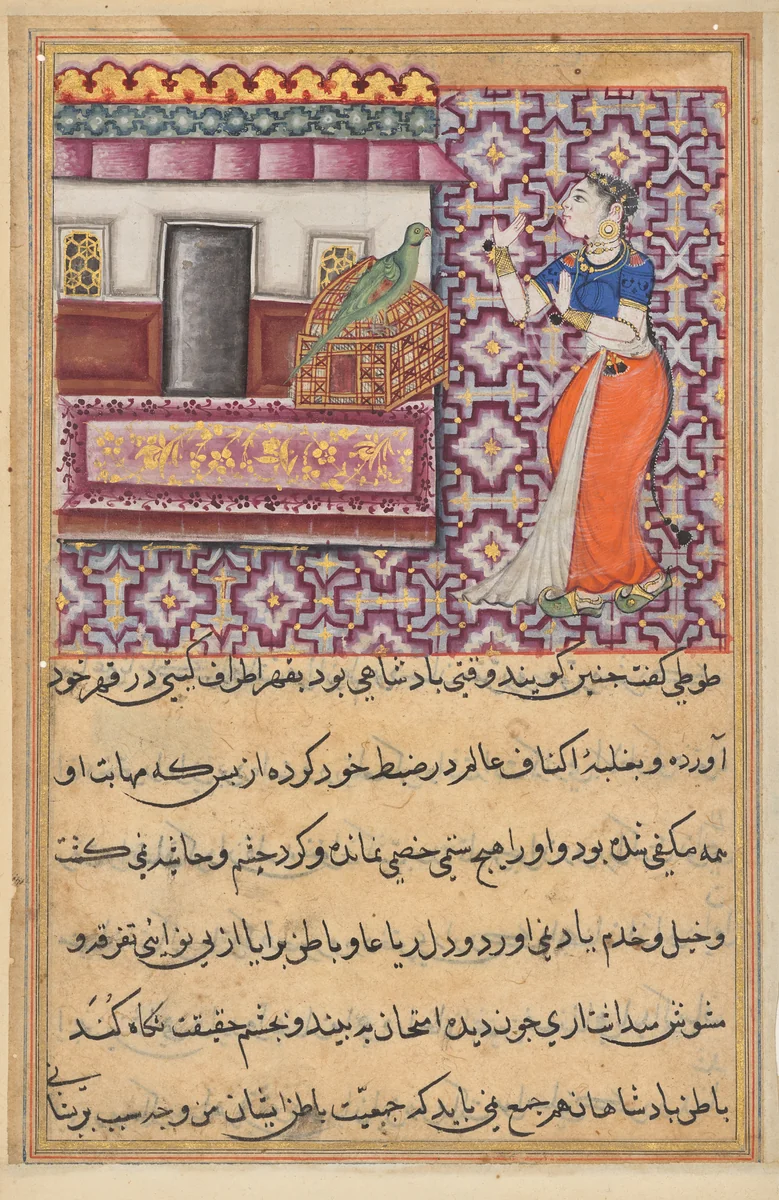 طوطي گفت جنین گویند وقتی بادشاهي بود بقهر اطراف گیتي در قهر خود
آورده و بغلبهٔ اکناف عالم در ضبط خود کرده از بس که مهابت او
همه مکفي شده بود و او را هیچ سمتي خصمي نمانده و کرد حشم و حاشیه نمي کشت
و خیل و خدم یاد نمي اورد و دل رعایا و باطن برایا از بي نوائي متفرقه و
مشوش میداشت اري جون دیده امتحان به بیند و بجشم حقیقت نکاه کُنَد
باطن بادشاهان هم جمع نمي باید که جمعیّت باطن ایشان من وجه سبب پریشاني